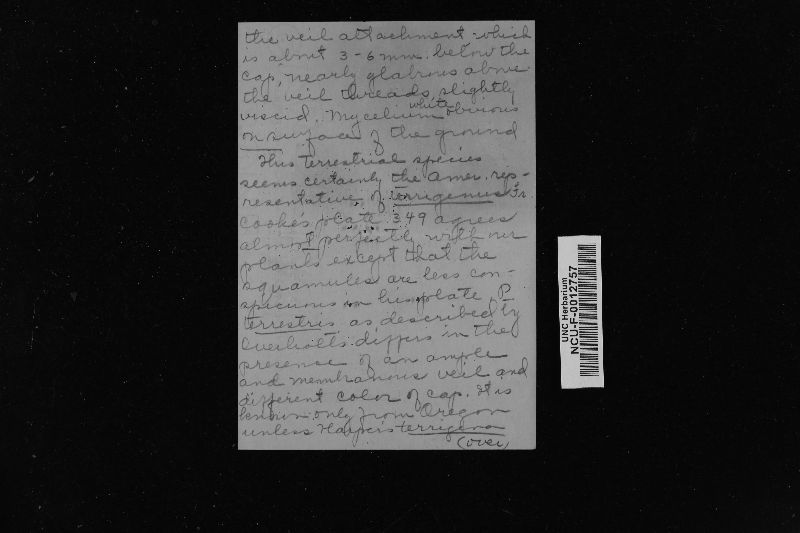 the veil attachment which
is about 3-6 mm. below the
cap, nearly glabrous above
the veil threads, slightly
viscid. Mycelium white obvious
on surface of the ground
This terrestrial species
seems certainly the Amer. rep-
resentative of terrigenus Fr.
Cooke's plate 349 agrees
almost perfectly with our
plants except that the
squamules are less con-
spicuous in his plate. P.
terrestris as described by
Overholts differs in the
presence of an ample
and membranous veil and
different color of cap. It is
known only from Oregon
unless Harper's terrigena
(over)
UNC Herbarium
NCU-F-0012757